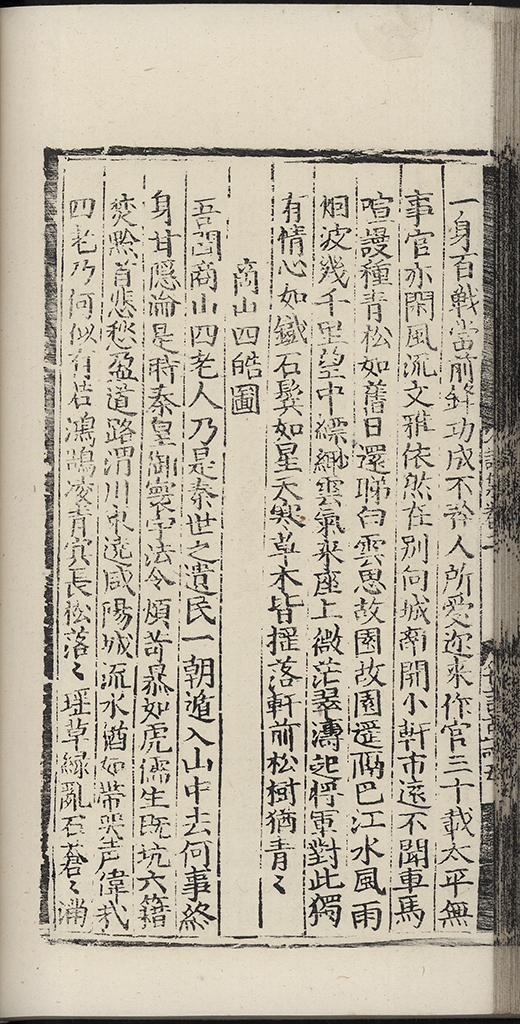 一身百戰當前鋒功成不矜人所受迩來作官三十載太平無
事官亦閑風流文雅依然在別向城南開小軒市遠不聞車馬
喧謾種青松如舊日還睇白雲思故園故園遥隔巴江水風雨
烟波幾千里空中縹緲雲氣來座上微茫翠濤起將軍對此獨
有情心如鐵石鬓如星天寒草木皆擺落軒前松樹猶青〻
商山四皓圖
吾聞商山四老人乃是秦世之遺民一朝遁入山中去何事終
身甘隠淪是時秦皇御寰宇法令煩苛暴如虎儒生既坑六籍
焚黔首悲愁盈道路渭川水遶咸陽城流水猶如帶哭声偉哉
四老乃何似有若鴻鵠凌青冥長松落〻瑶草緑亂石蒼〻滿